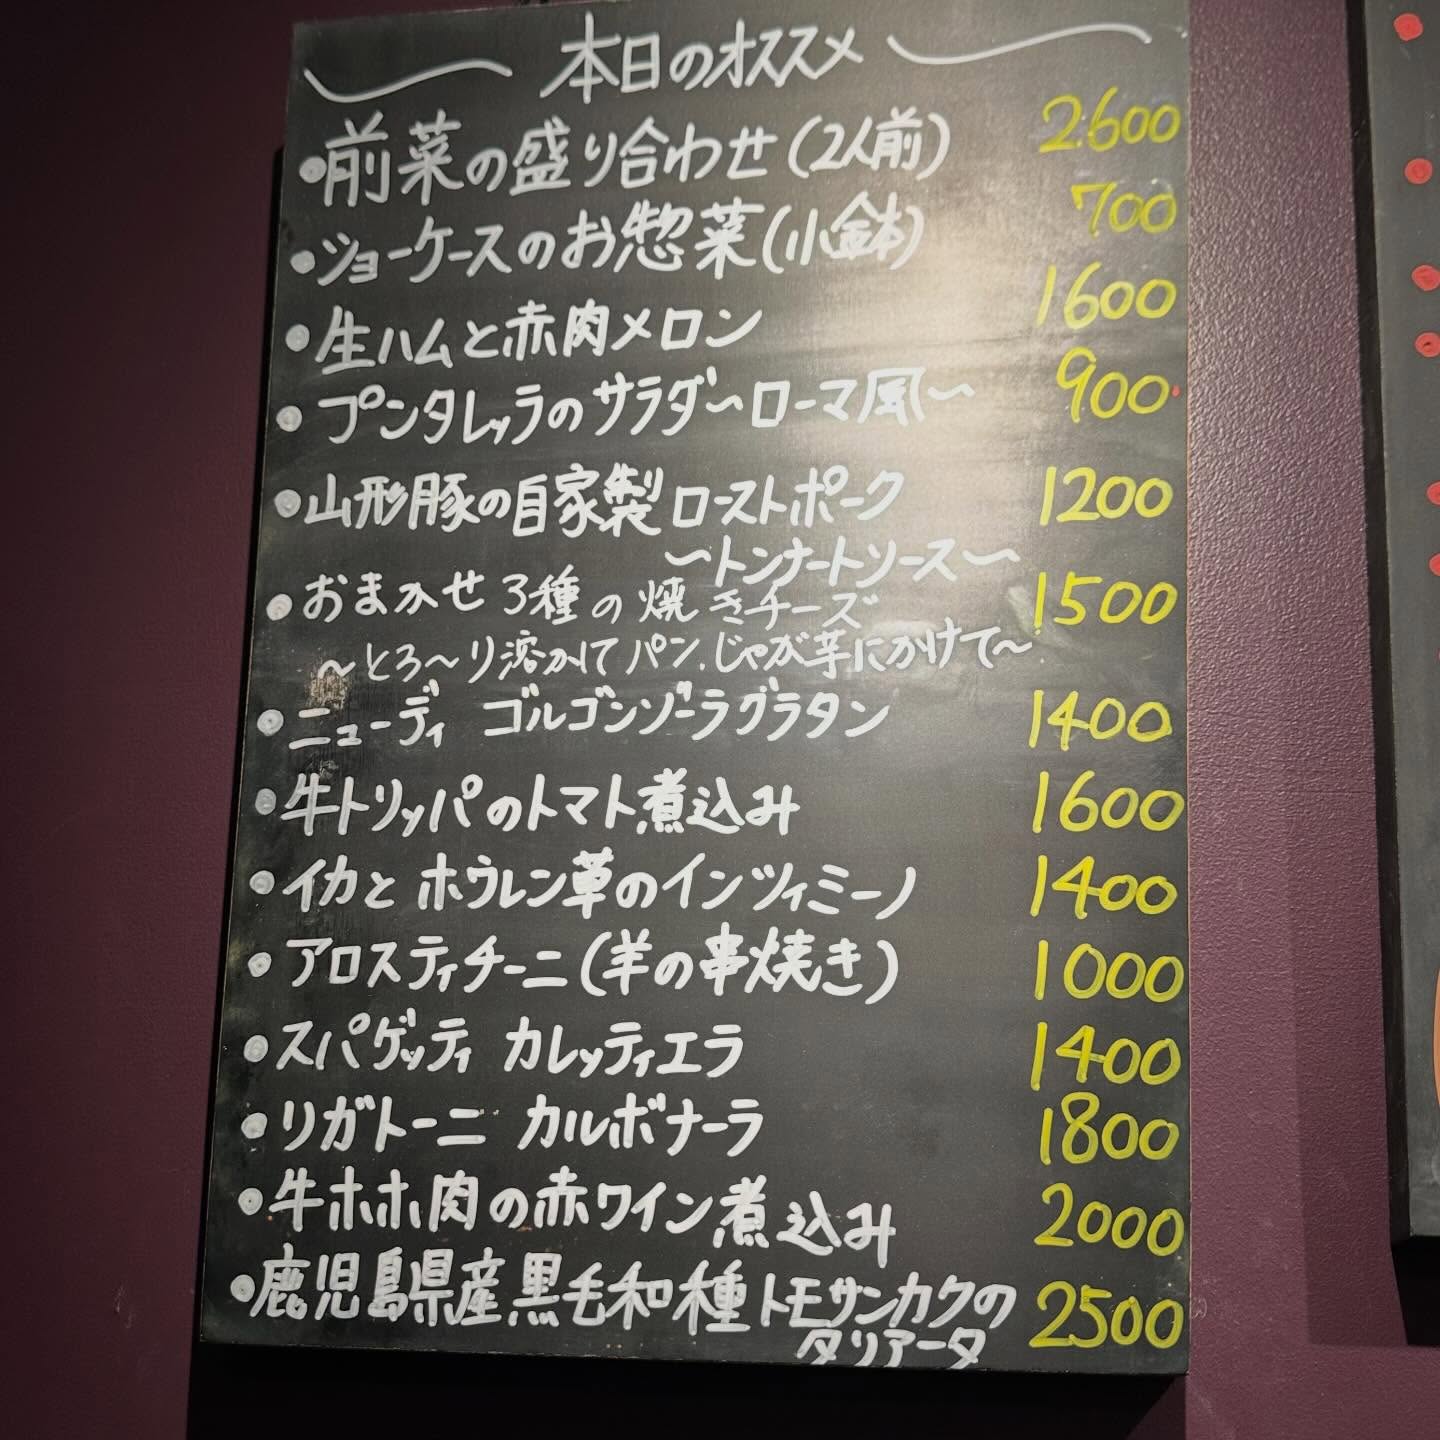 本日のオススメ
•前菜の盛り合わせ(2人前) 2600
•ショーケースのお惣菜(小鉢) 700
•生ハムと赤肉メロン 1600
•プンタレッラのサラダ〜ローマ風〜 900
•山形豚の自家製ローストポーク 1200
〜トンナートソース〜
•おまかせ3種の焼きチーズ 1500
〜とろ〜り溶かしてパン、じゃが芋にかけて〜
•ニョーディ ゴルゴンゾーラグラタン 1400
•牛トリッパのトマト煮込み 1600
•イカとホウレン草のインツィミーノ 1400
•アロスティチーニ(羊の串焼き) 1000
•スパゲッティ カレッティエラ 1400
•リガトーニ カルボナーラ 1800
•牛ホホ肉の赤ワイン煮込み 2000
•鹿児島県産黒毛和種トモサンカクの 2500
タリアータ